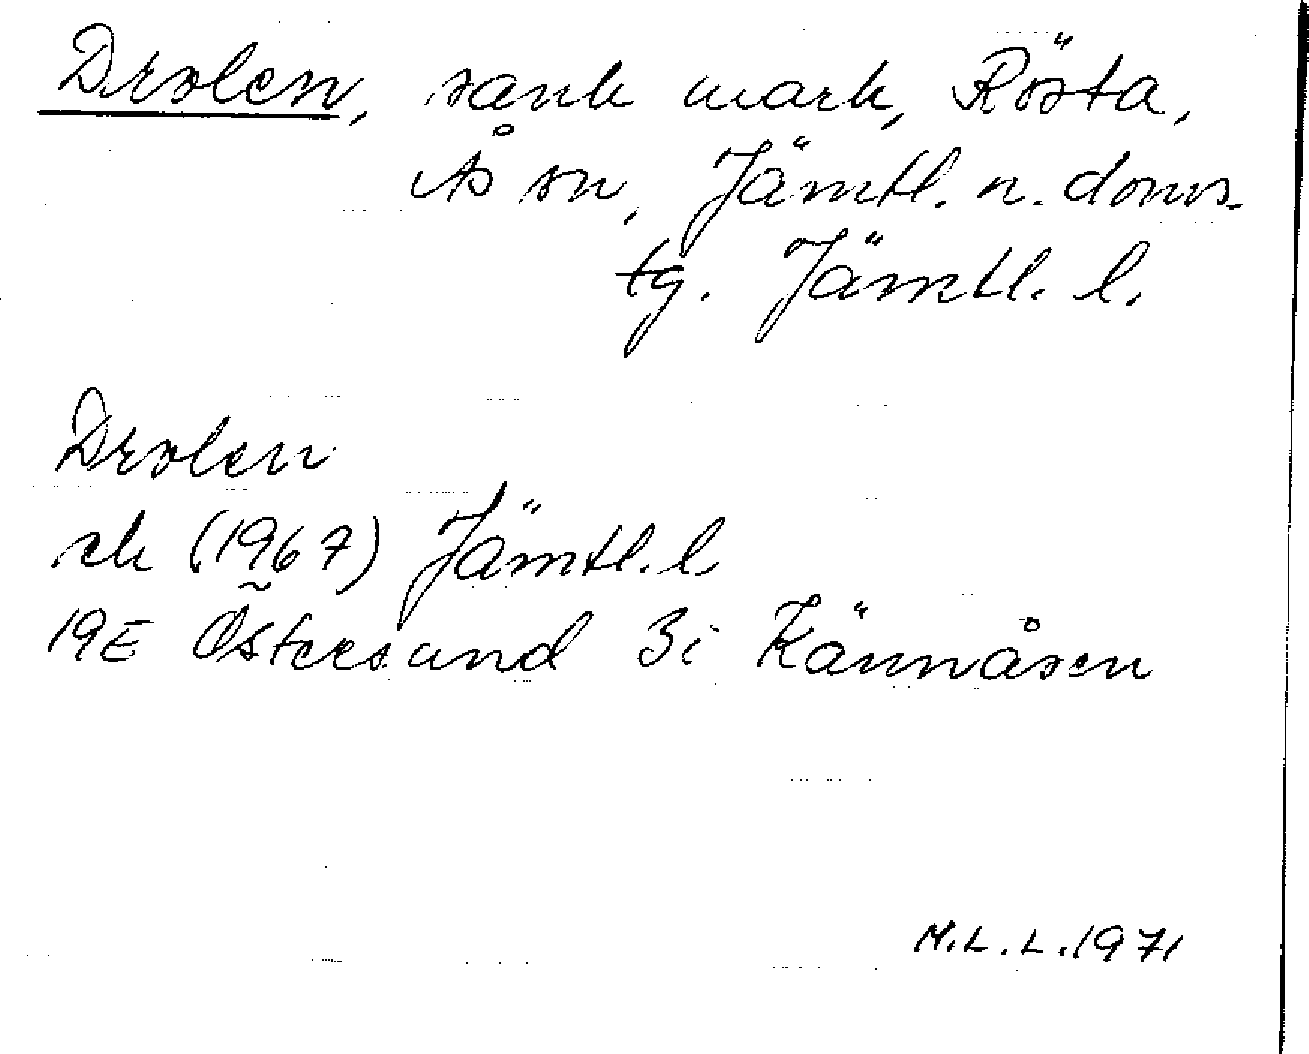 Drolen, sank mark, Rösta,
Ås sn, Jämtl. n. doms.
tg. Jämtl. l.
Drolen
ek (1967) Jämtl. l.
19E Östersund 3i Kännåsen
M.L.L. 1971